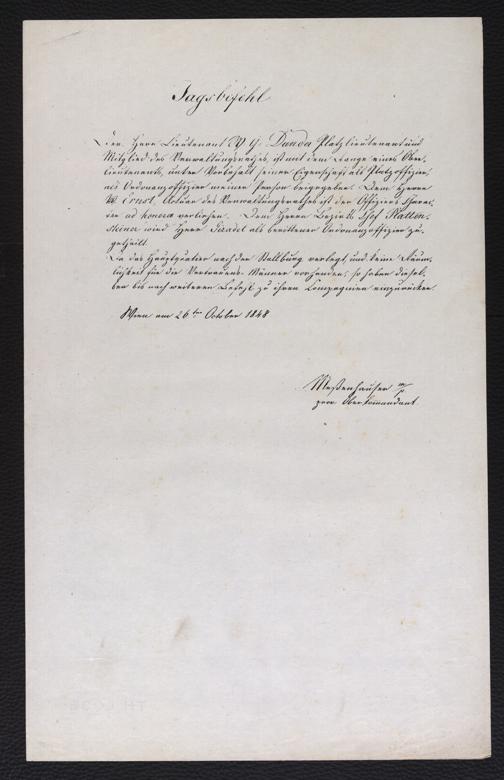 Tagsbefehl
Der Herr Lieutenant W. G. Dunder Platzlieutenant und
Mitglied des Verwaltungsrathes, ist mit dem Range eines Ober-
lieutenants, unter Vorbehalt seiner Eigenschaft als Platzoffizier,
als Ordonanzoffizier meiner Person beigegeben. Dem Herrn
Ernst, Actuar des Verwaltungsrathes ist der Offiziers Charac-
ter ad honores verliehen. Dem Herrn Bezirks Chef
wird Herr als berittener Ordonanzoffizier zu-
getheilt.
Da das Hauptquartier nach der Stallburg verlegt, und keine Räum-
lichkeit für die Vertrauens-Männer vorhanden, so haben diesel-
ben bis nach weiteren Befehl zu ihren Compagnien einzurücken.
Wien am 26ten October 1848
Meßenhauser m/p
prov. Obercomandant